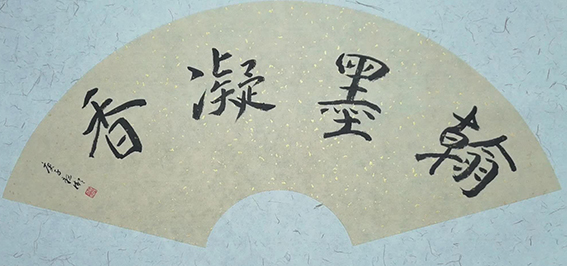 翰墨凝香